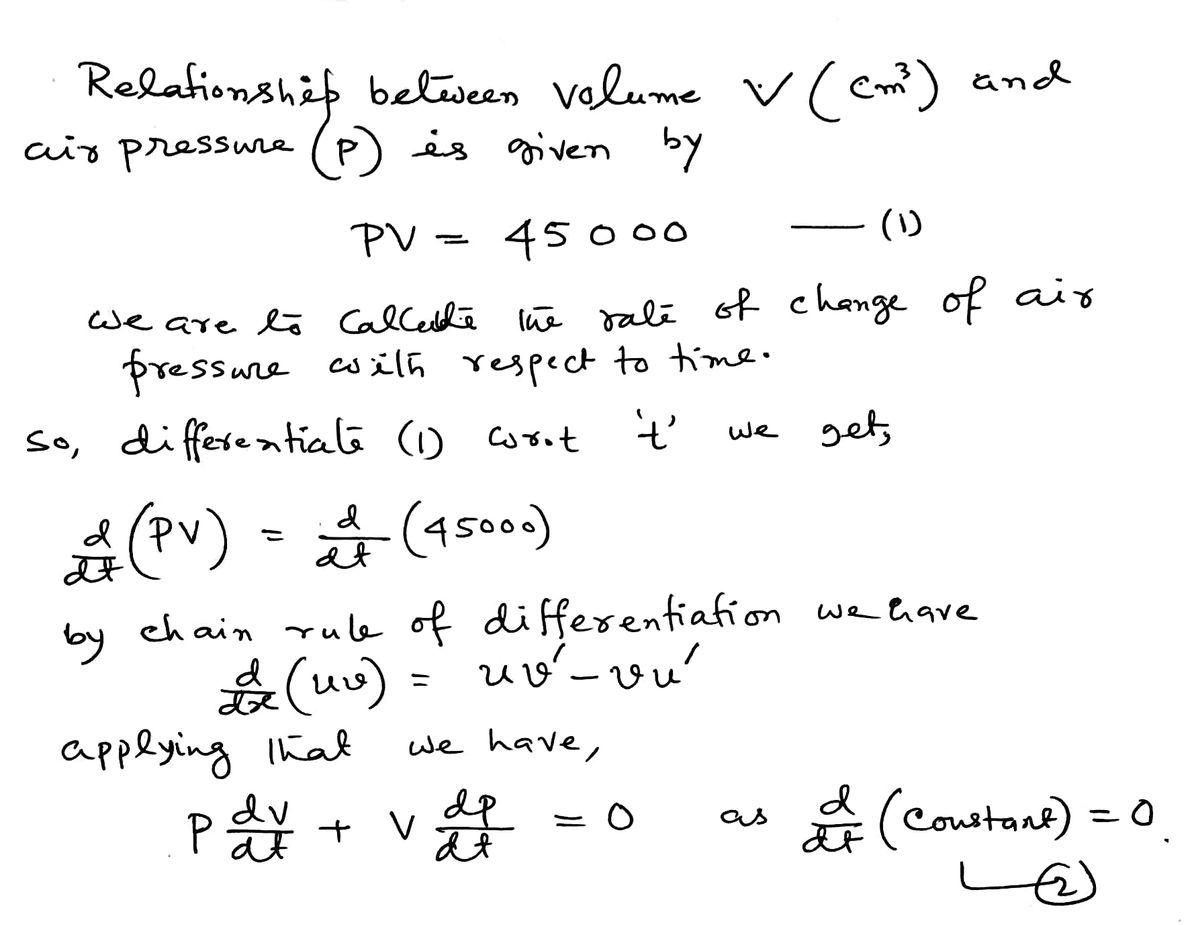 Relationship between volume V (cm³) and
air pressure (P) is given by
PV = 45000 — (1)
we are to Calculate the rate of change of air
pressure with respect to time.
so, differentiate (1) w.r.t 't' we get,
d/dt (PV) = d/dt (45000)
by chain rule of differentiation we have
d/dx (uv) = uv' - vu'
applying that we have,
P dv/dt + V dp/dt = 0 as d/dt (constant) = 0.
(2)